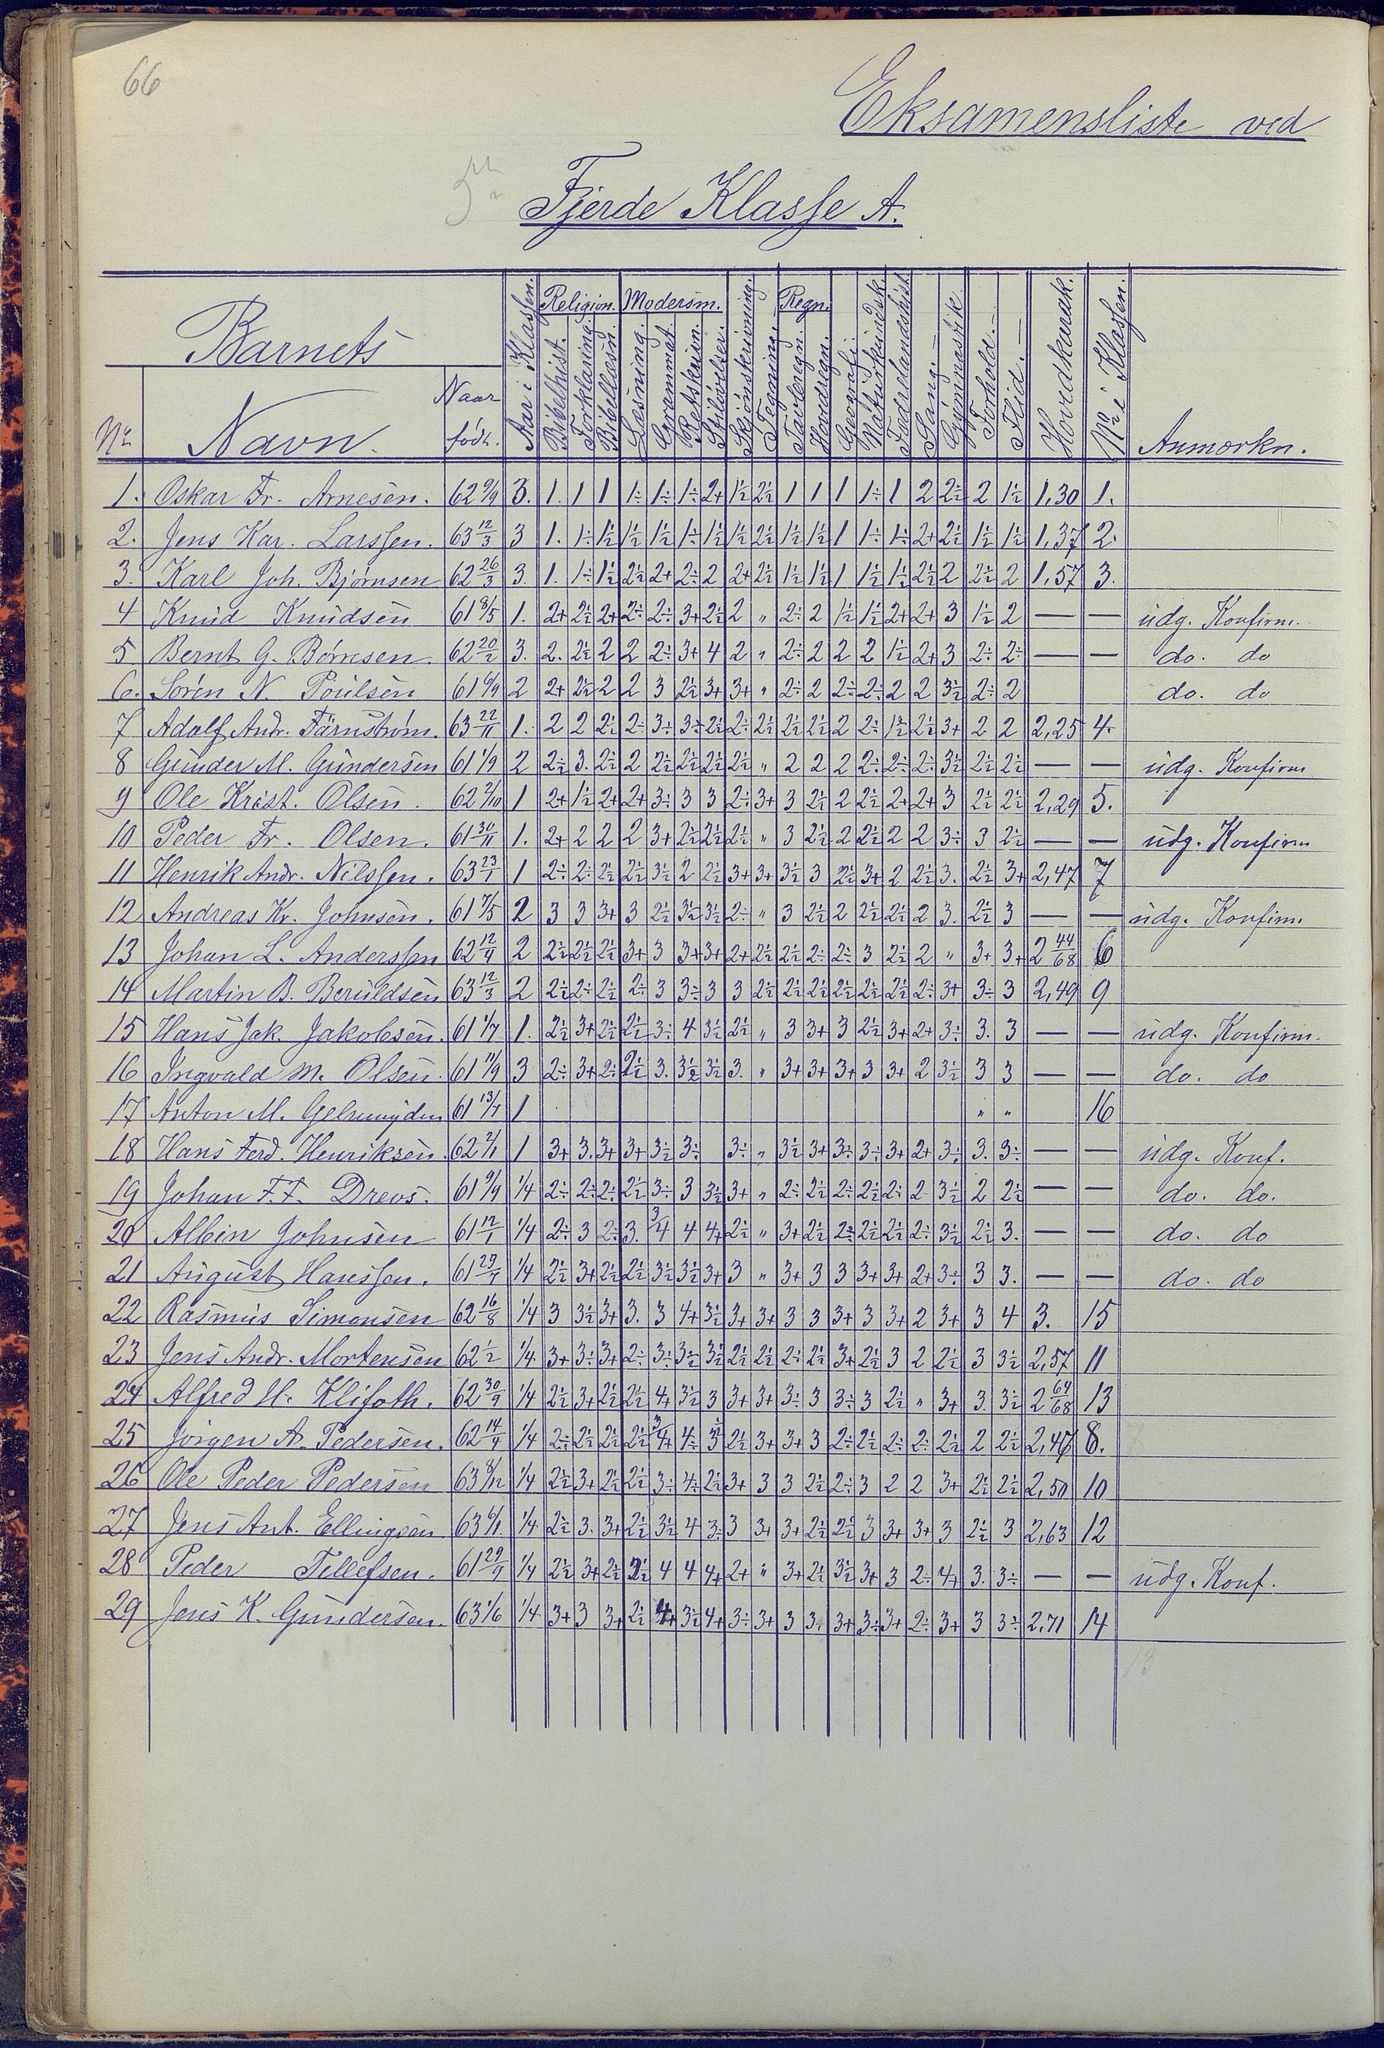 66
Eksamensliste ved
Fjerde Klasse A.
Barnets
Religion. Modersm. Regn.
No Navn. Naar født. Aar i Klassen. Bibelhist. Forklaring. Bibellæsn. Læsning. Grammat. Retskrivn. Stiløvelser. Skjønskrivning. Tegning. Tavleregn. Hovdregn. Geografi. Naturkundsk. Fædrelandshist. Sang. Gymnastik. Forhold. Flid. Hovedkarak. No i Klassen. Anmærkn.
1. Oskar Fr. Arnesen. 3. 1. 1 1 1÷ 1÷ 1÷ 2+ 1½ 2½ 1 1 1 1÷ 1 2 2½ 2 1½ 1,30 1.
2. Jens Kar. Larssen. 63 12/3 3 1. 1÷ 1½ 1½ 1½ 1÷ 1½ 1½ 2½ 1½ 1½ 1 1÷ 1÷ 2+ 2½ 1½ 1½ 1,37 2.
3. Karl Joh. Bjørnsen 62 26/3 3. 1. 1÷ 1½ 2½ 2+ 2÷ 2 2+ 2½ 1½ 1½ 1 1½ 1½ 2½ 2 2½ 2 1,57 3.
4 Knud Knudsen 61 8/5 1. 2+ 2½ 2+ 2÷ 2÷ 3+ 2½ 2 " 2÷ 2 1½ 1½ 2+ 2+ 3 1½ 2 — — udg. Konfirm.
5 Bernt G. Børresen. 62 20/2 3. 2. 2½ 2 2 2÷ 3+ 4 2 " 2÷ 2 2 2 1½ 2+ 3 2÷ 2÷ — — do. do
6. Søren N. Poulsen 2 2+ 2½ 2 2 3 2½ 3+ 3+ " 2÷ 2 2÷ 2÷ 2 2 3½ 2÷ 2 do. do
7 Adolf Andr. Färnstrøm. 63 22/11 1. 2 2 2½ 2÷ 3÷ 3÷ 2½ 2÷ 2½ 2½ 2½ 2 2÷ 2½ 3+ 2 2 2,25 4.
8 Gunder M. Gundersen 61 1/9 2 2÷ 3. 2½ 2 2½ 2½ 2½ 2½ " 2 2 2 2÷ 2÷ 2÷ 3½ 2½ 2½ — — udg. Konfirm
9 Ole Krist. Olsen. 62 2/10 1 2+ 1½ 2+ 2+ 3÷ 3 3 2÷ 3+ 3 2½ 2 2½ 2+ 2+ 3 2½ 2½ 2,29 5.
10 Peder Fr. Olsen. 61 30/11 1. 2+ 2 2 2 3+ 2½ 2½ 2½ " 3 2½ 2 2½ 2 2 3÷ 3 2½ — — udg. Konfirm
11 Henrik Andr. Nilssen. 63 23/1 1 2÷ 2÷ 2½ 2½ 3½ 2 2½ 3+ 3+ 3½ 3 2½ 3+ 2 2½ 3. 2½ 3+ 2,47 7
12 Andreas Kr. Johnsen. 61 7/5 2 3 3 3+ 3 2½ 3½ 3½ 2÷ " 3 2½ 2 2½ 2½ 2 3. 2½ 3 — — udg. Konfirm.
13 Johan L. Anderssen 62 12/4 2 2½ 2½ 2½ 3+ 3 3+ 3+ 2+ 2½ 2½ 2÷ 2÷ 3 2½ 2 " 3+ 3+ 2 44/68 6
14 Martin B. Beruldsen 63 12/3 2 2½ 2÷ 2½ 2÷ 3 3÷ 3 3 2½ 2½ 2½ 2½ 2½ 2½ 2÷ 3+ 3÷ 3 2,49 9
15 Hans Jak. Jakobsen. 61 1/7 1. 2½ 3+ 2½ 2½ 3÷ 4 3½ 2½ " 3 3+ 3 2½ 3+ 2+ 3÷ 3. 3 — — udg. Konfirm.
16 Ingvald M. Olsen. 61 11/9 3 2÷ 3+ 2÷ 2½ 3. 3½ 3½ 3. " 3+ 3+ 3+ 3 3+ 2 3½ 3 3 — — do. do
17 Anton M. Gelmuyden 61 13/7 1 " " 16
18 Hans Ferd. Henriksen. 62 2/1 1 3+ 3. 3+ 3+ 3½ 3÷ 3÷ " 3½ 3+ 3÷ 3÷ 3+ 2+ 3÷ 3. 3÷ — — udg. Konf.
19 Johan F.F. Drevs. 1/4 2÷ 2÷ 2÷ 2½ 3÷ 3 3½ 3+ " 2÷ 2½ 2÷ 2½ 2÷ 2 3½ 2 2½ — — do. do.
20 Albin Johnsen 61 12/1 1/4 2÷ 3 2÷ 3. 3/4 4 4+ 2½ " 3+ 2½ 2÷ 2½ 2½ 2÷ 3½ 2½ 3. — — do. do
21 August Hanssen. 1/4 2½ 3+ 2½ 2½ 3½ 3½ 3+ 3 " 3+ 3 3 3+ 3+ 2+ 3÷ 3 3. — — do. do
22 Rasmus Simonsen 62 16/8 1/4 3 3½ 3+ 3. 3 4+ 3½ 3+ 3+ 3 3 3+ 3 3+ 2 3+ 3 4 3. 15
23 Jens Andr. Mortensen 62 1/2 1/4 3+ 3÷ 3+ 2÷ 3÷ 3½ 3½ 2½ 2½ 2÷ 2½ 3+ 2½ 3 2 2½ 3 3½ 2,57 11
24 Alfred H. Klifoth. 62 30/9 1/4 2½ 3+ 2½ 2½ 4+ 3½ 3 3+ 3+ 3÷ 3 3÷ 3 2½ " 3+ 3. 3½ 2 64/68 13
25 Jørgen A. Pedersen. 62 14/4 1/4 2÷ 2½ 2½ 2½ 3/4+ 4÷ 3½ 2½ 3+ 3+ 3 2÷ 2½ 2÷ 2÷ 2½ 2 2½ 8.
26 Ole Peder Pedersen 63 8/12 1/4 2½ 3+ 2½ 2½ 3÷ 4÷ 2½ 3+ 3 3 2½ 2÷ 3 2 2 3+ 2½ 2½ 2,50 10
27 Jens Ant. Ellingsen 63 6/1 1/4 2½ 3. 3+ 2½ 3½ 4 3÷ 3 3+ 3+ 2½ 2½ 3 3+ 3+ 3 2½ 3 2,63 12
28 Peder Tellefsen. 61 29/9 1/4 2½ 3+ 2½ 3½ 4 4 4+ 2+ " 3+ 2½ 3½ 3+ 3 2÷ 4+ 3. 3÷ — — udg. Konf.
29 Jens K. Gundersen. 63 1/6 1/4 3+ 3 3+ 2½ 4+ 3½ 4+ 3÷ 3+ 3 3+ 3+ 3÷ 3+ 2÷ 3+ 3 3÷ 2,71 14
13